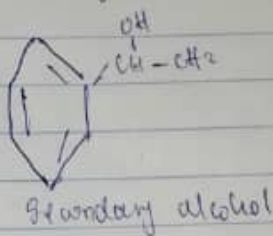 OH
CH - CH₂
Secondary alcohol